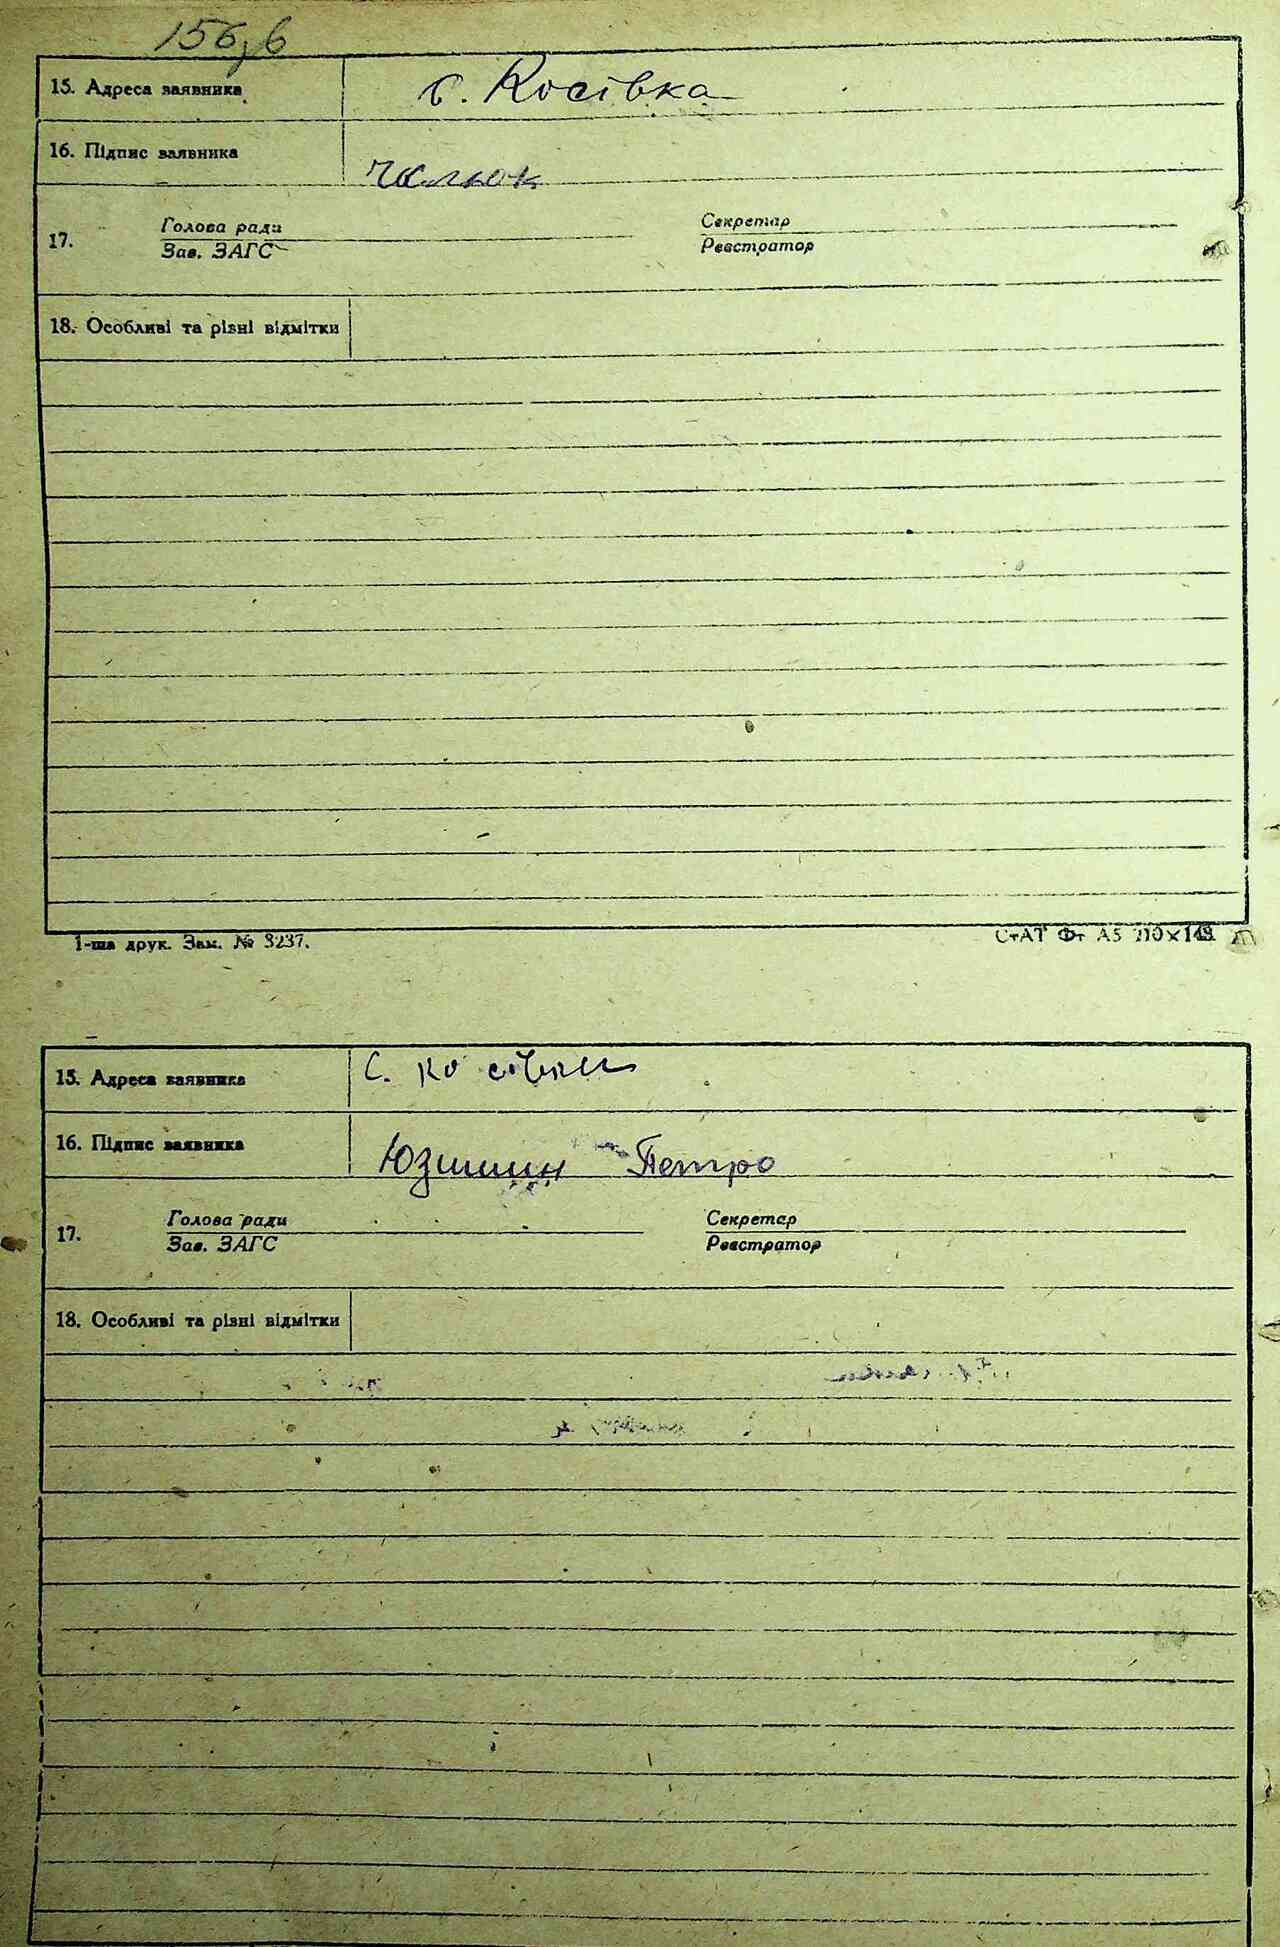 156,б
15. Адреса заявника с. Косівка
16. Підпис заявника Чалюк
17. Голова ради Секретар
Зав. ЗАГС Реєстратор
18. Особливі та різні відмітки
1-ша друк. Зам. № 3237. СтАТ Фт А5 210×148
15. Адреса заявника с. Косівки
16. Підпис заявника Юзишин Петро
17. Голова ради Секретар
Зав. ЗАГС Реєстратор
18. Особливі та різні відмітки